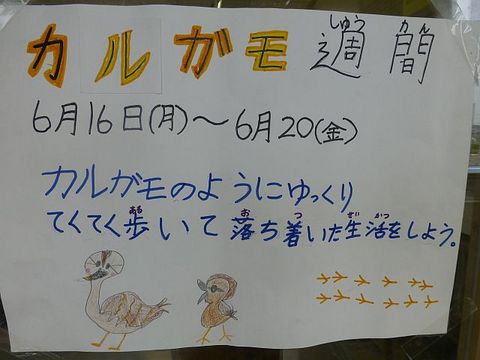 カルガモ週間
6月16日(月)〜6月20(金)
カルガモのようにゆっくり
てくてく歩いて落ち着いた生活をしよう。